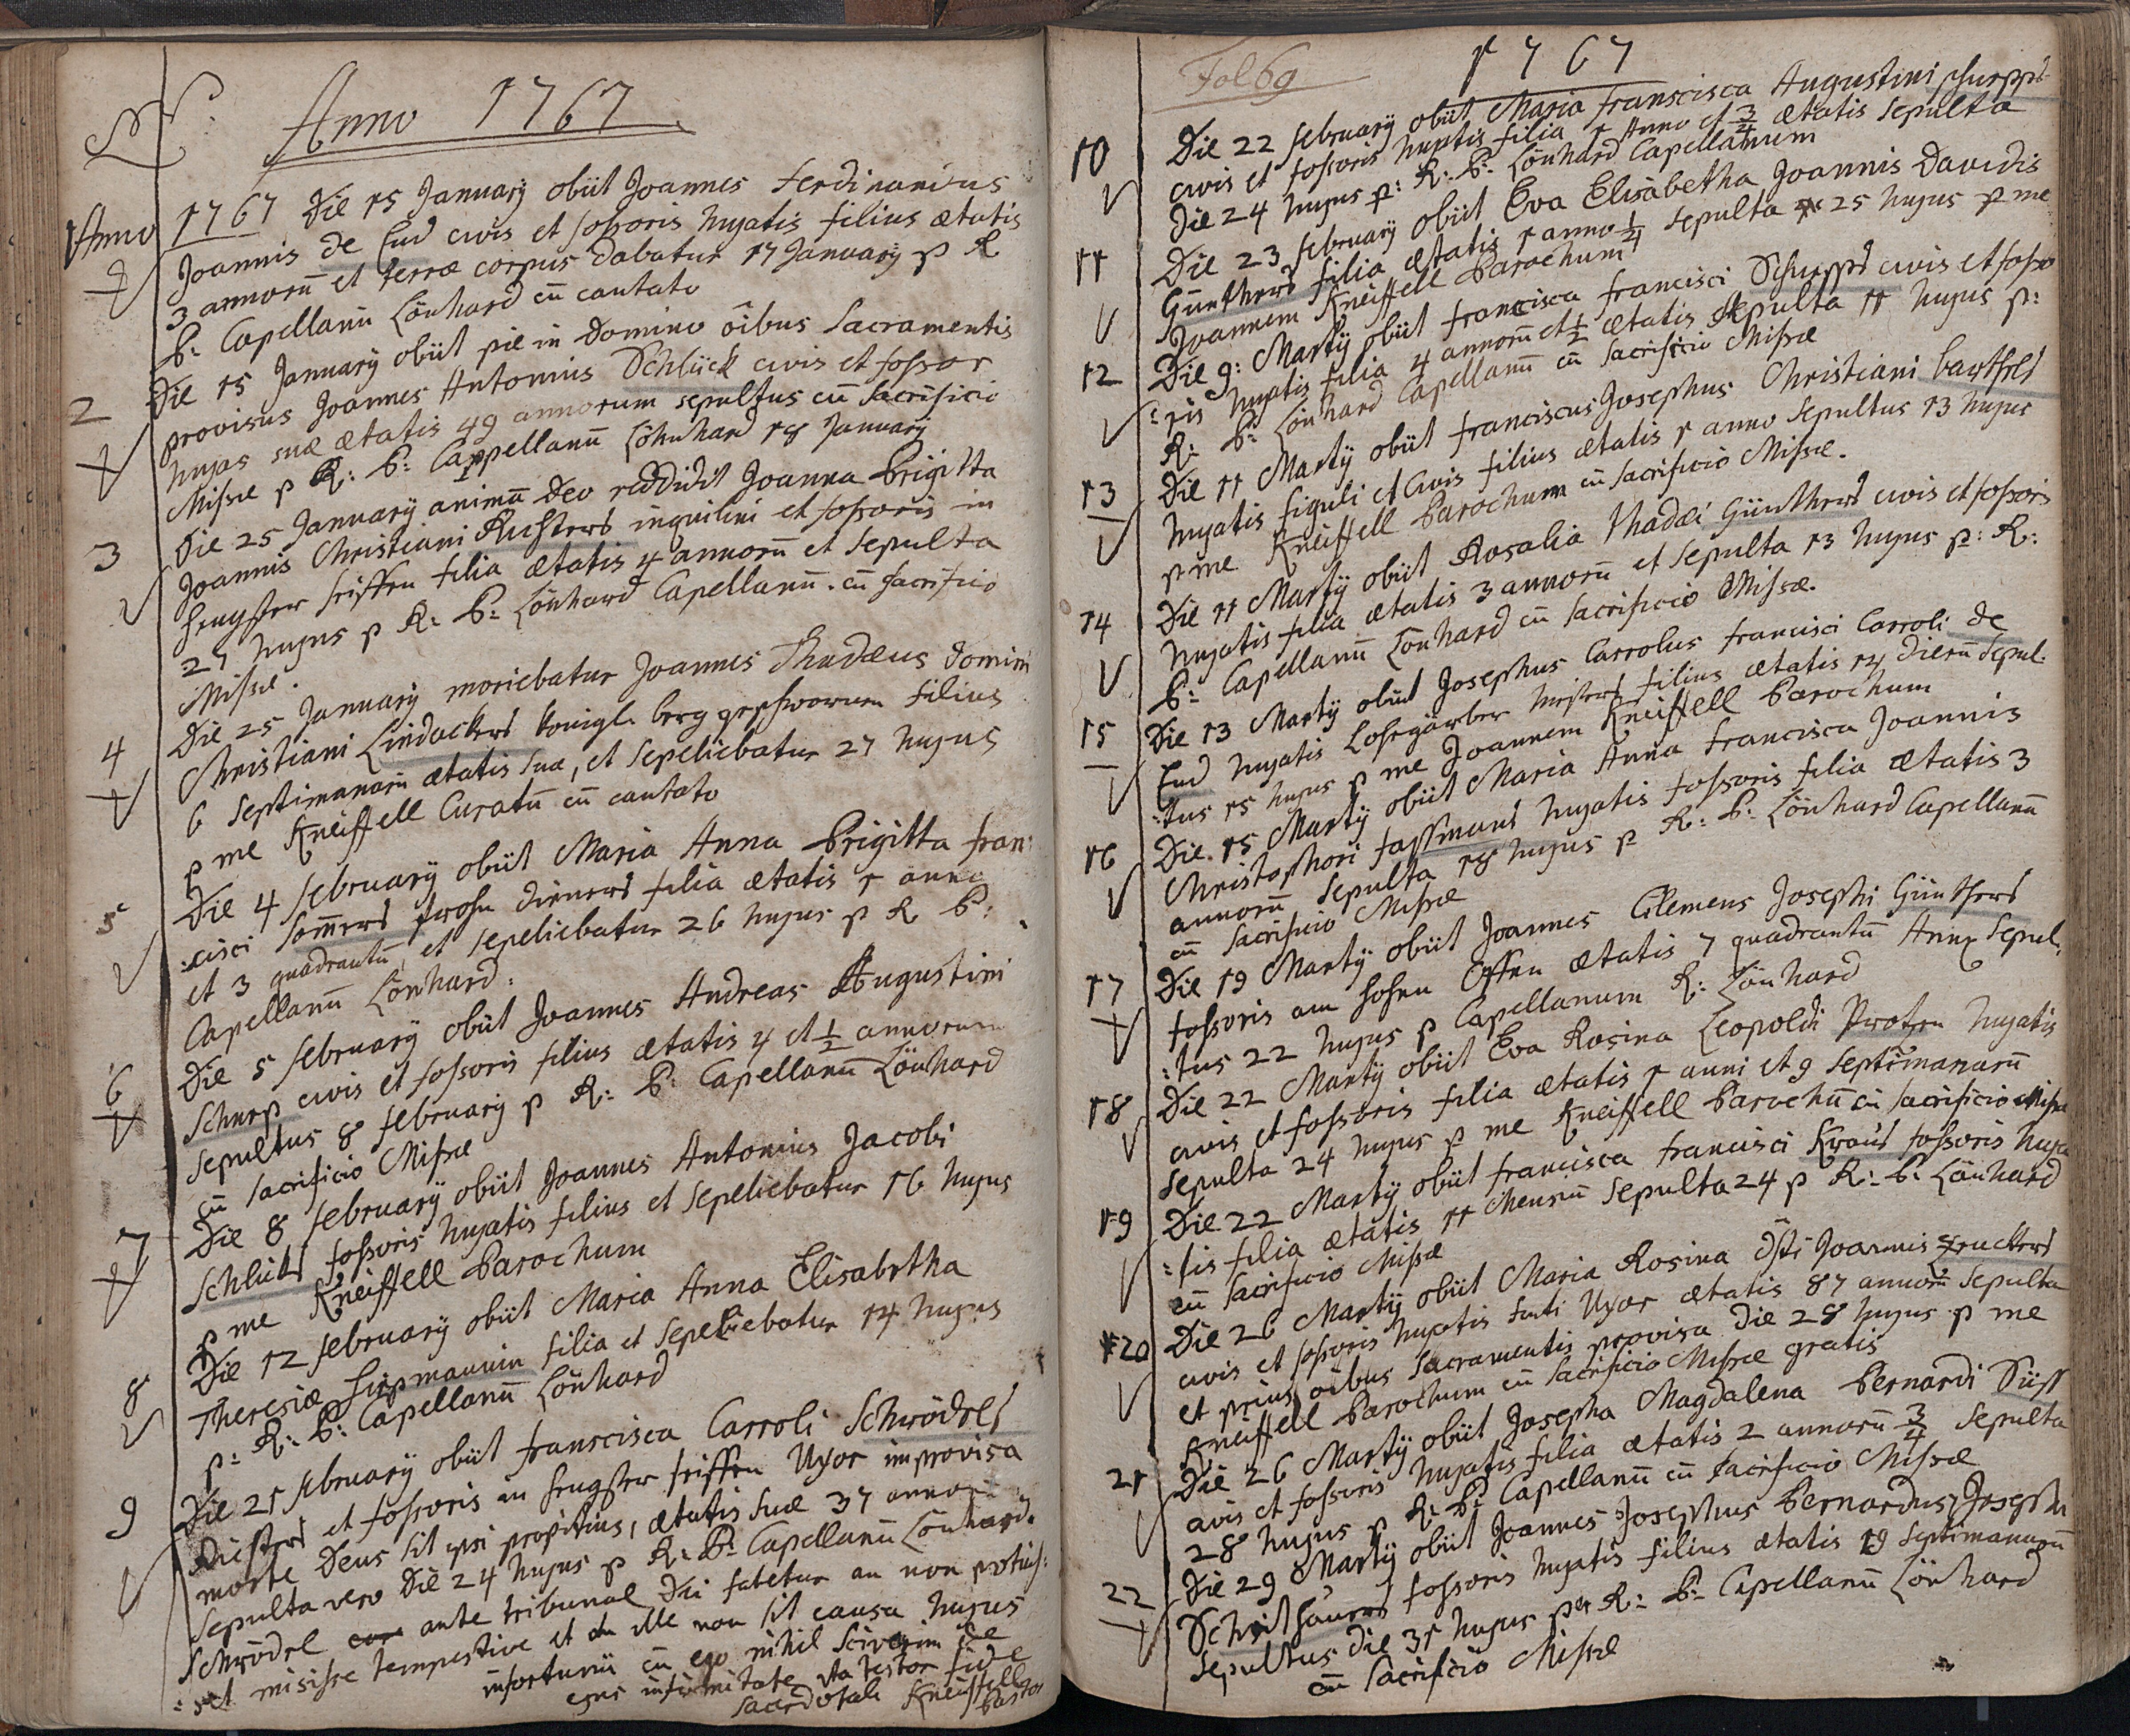 Anno 1767.
Anno 1767 Die 15 January obiit Joannes Ferdinandus
Joannis de End civis et fossoris hujatis filius ætatis
3 annorū et terræ corpus dabatur 17 January p R
P: Capellanū Lönhard cū cantato
2 Die 15 January obiit pie in Domino oībus Sacramentis
provisus Joannes Antonius Schlück civis et fossor
hujas suæ ætatis 49 annorum sepultus cū Sacrificio
Missæ p R: P: Cappellanū Löhnhard 18 January
3 Die 25 January animā Deo reddidit Joanna Brigitta
Joannis Christiani Richters inquilini et fossoris in
Hengster filia ætatis 4 annorū et Sepulta
27 hujus p R: P: Lönhard Capellanū. cū Sacrificio
Missæ.
4 Die 25 January moriebatur Joannes Thadæus Domini
Christiani Lindackers Königl. berg geschworнen filius
6 Septimanarū ætatis suæ, et Sepeliebatur 27 hujus
p me Kneissell Curatū cū cantato
5 Die 4 February obiit Maria Anna Brigitta Fran:
:cisci Som̄ers frohn Dieners filia ætatis 1 anno
et 3 quadrantū, et Sepeliebatur 26 hujus p R P:
Capellanū Lönhard.
6 Die 5 February obiit Joannes Andreas Augustini
Schurp civis et fossoris filius ætatis 4 et 1/2 annorum
Sepultus 8 February p R: P: Capellanū Lönhard
cū Sacrificio Missæ
7 Die 8 February obiit Joannes Antonius Jacobi
Schlüks fossoris hujatis filius et Sepeliebatur 16 hujus
p me Kneissell Parochum
8 Die 12 February obiit Maria Anna Elisabetha
Theresiæ filia et Sepeliebatur 14 hujus
p: R: P: Capellanū Lönhard
9 Die 21 February obiit Franscisca Carroli Schrödels
et fossoris in Hengster Uxor improvisa
morte Deus sit ipsi propitius, ætatis suæ 37 annorū
Sepulta vero Die 24 hujus p R: P: Capellanū Lönhard.
Schrödel ante tribunal Dei fatetur an non potuis:
:set misisse tempestive et an ille non sit causa hujus
infortunii cū ego nihil sciverim de
ejus infirmitate ita testor fide
Sacerdotali Kneissell
Pastor
Fol 69
1767
10 Die 22 February obiit Maria Franscisca Augustini Schurps
civis et fossoris hujatis filia 1 Anno et 3/4 ætatis Sepulta
Die 24 hujus p: R: P: Lönhard Capellanum
11 Die 23 February obiit Eva Elisabetha Joannis Davidis
Günthers filia ætatis 1 anno 1/4 Sepulta 25 hujus p me
Joannem Kneissell Parochum
12 Die 9: Martÿ obiit Francisca Francisci Schurps civis et fosso
:ris hujatis filia 4 annorū et 1/2 ætatis Sepulta 11 hujus p:
R: P: Lönhard Capellanū cū Sacrificio Missæ
13 Die 11 Martÿ obiit Franciscus Josephus Christiani Barthels
hujatis figuli et civis filius ætatis 1 anno Sepultus 13 hujus
p me Kneissell Parochum cū Sacrificio Missæ.
14 Die 11 Martÿ obiit Rosalia Thadæi Günthers civis et fossoris
hujatis filia ætatis 3 annorū et Sepulta 13 hujus p: R:
P: Capellanū Lönhard cū Sacrificio Missæ.
15 Die 13 Martÿ obiit Josephus Carrolus Francisci Carroli de
End hujatis Lohgärber Meisters filius ætatis 14 Dierū Sepul:
:tus 15 hujus p me Joannem Kneissell Parochum
16 Die. 15 Martÿ obiit Maria Anna Francisca Joannis
Christophori Fassmans hujatis fossoris filia ætatis 3
annorū Sepulta 18 hujus p R: P: Lönhard Capellanū
cū Sacrificio Missæ
17 Die 19 Martÿ obiit Joannes Clemens Josephi Günthers
fossoris am hohen Offen ætatis 7 quadrantū Anni Sepul:
:tus 22 hujus p Capellanum R: Lönhard
18 Die 22 Martÿ obiit Eva Rosina Leopoldi hujatis
civis et fossoris filia ætatis 1 anni et 9 Septimanarū
Sepulta 24 hujus p me Kneissell Parochū cū Sacrificio Missæ
19 Die 22 Martÿ obiit Francisca Francisci Kraus fossoris huja
:tis filia ætatis 11 Mensiū Sepulta 24 p R: P: Lönhard
cū Sacrificio Missæ
20 Die 26 Martÿ obiit Maria Rosina Joannis
civis et fossoris hujatis Uxor ætatis 87 annorū Sepulta
et prius oībus Sacramentis provisa Die 28 hujus p me
Kneissell Parochum cū Sacrificio Missæ gratis
21 Die 26 Martÿ obiit Josepha Magdalena Bernardi Süss
civis et fossoris hujatis filia ætatis 2 annorū 3/4 Sepulta
28 hujus p R: P: Capellanū cū Sacrificio Missæ
22 Die 29 Martÿ obiit Joannes Josephus Bernardus Josephi
fossoris hujatis filius ætatis 19 Septimanarū
Sepultus Die 31 hujus per R: P: Capellanū Lönhard
cū Sacrificio Missæ